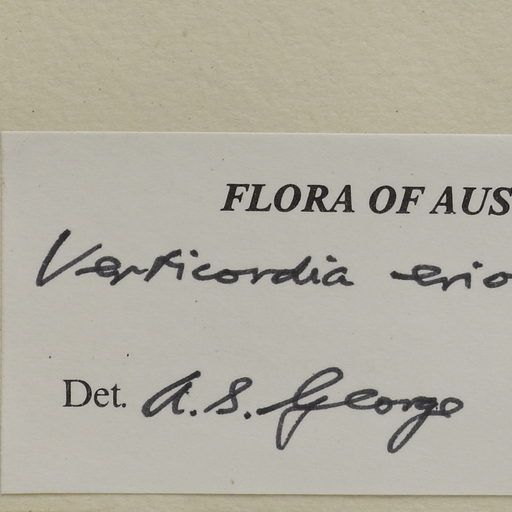 FLORA OF AUS
Verticordia erio
Det. A.S. George